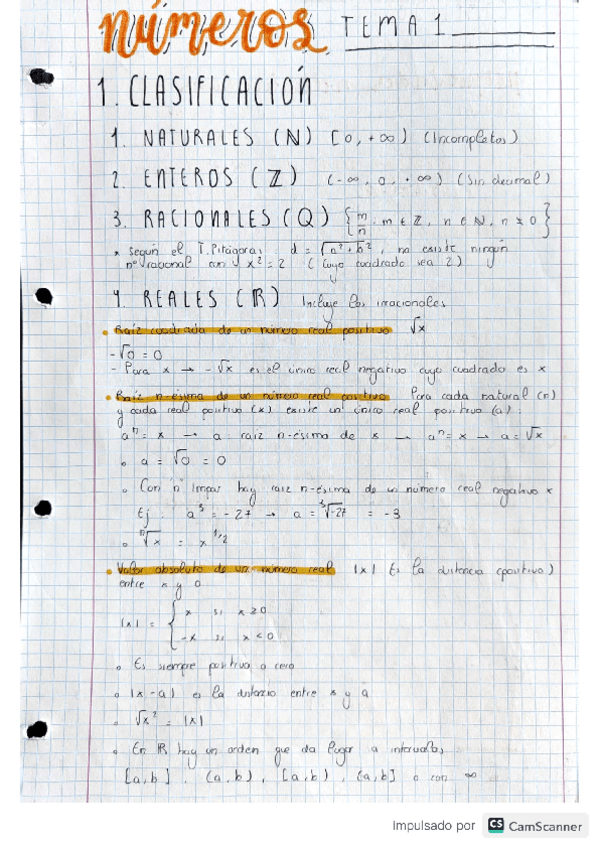 números TEMA 1
1. CLASIFICACIÓN
1. NATURALES (ℕ) [0, +∞) (Incompletos)
2. ENTEROS (ℤ) (-∞, 0, +∞) (Sin decimal)
3. RACIONALES (Q) {m/n : m ∈ ℤ, n ∈ ℕ, n ≠ 0}
* Según el T. Pitágoras: d = √a² + b², no existe ningún
nº racional con x² = 2 (cuyo cuadrado sea 2)
4. REALES (ℝ) Incluye los irracionales
• Raíz cuadrada de un número real positivo √x
- √0 = 0
- Para x → -√x es el único real negativo cuyo cuadrado es x
• Raíz n-ésima de un número real positivo Para cada natural (n)
y cada real positivo (x) existe un único real positivo (a):
aⁿ = x → a: raíz n-ésima de x → aⁿ = x → a = √x
• a = √0 = 0
• Con "n" impar hay raíz n-ésima de un número real negativo x
Ej: a³ = -27 → a = ³√-27 = -3
• ⁿ√x = x^1/2
• Valor absoluto de un número real |x| Es la distancia (positivo)
entre x y 0
|x| = { x si x ≥ 0
-x si x < 0
• Es siempre positivo o cero
• |x-a| es la distancia entre x y a
• √x² = |x|
• En ℝ hay un orden que da lugar a intervalos,
[a,b], (a,b), [a,b), (a,b] o con ∞
Impulsado por CS CamScanner